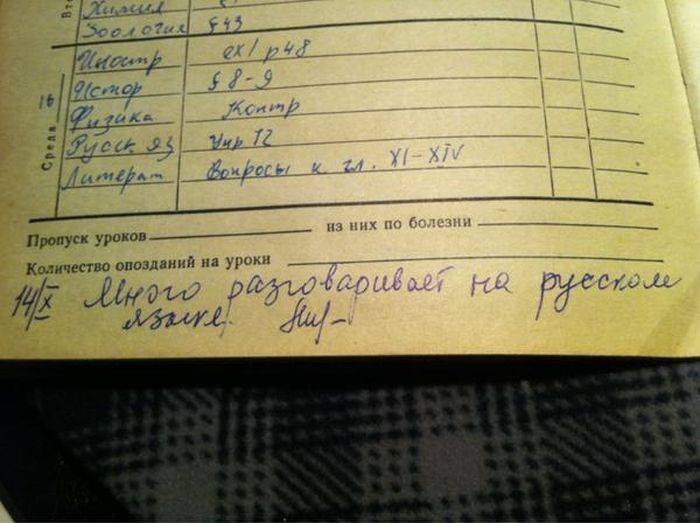 Вт
Химия
Зоология §43
Среда 16
Иностр ex1 p48
Истор §8-9
Физика Контр
Русск яз Упр 72
Литерат Вопросы к гл. XI-XIV
Пропуск уроков из них по болезни
Количество опозданий на уроки
14/X Много разговаривает на русском
языке.